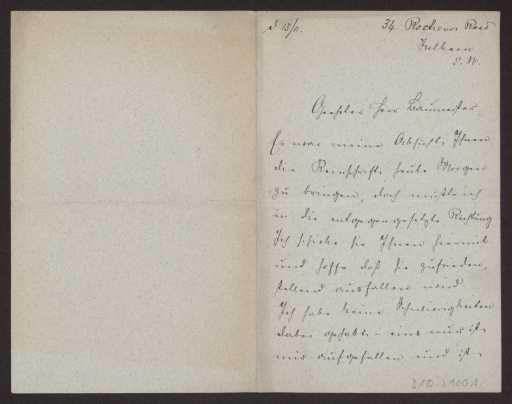 34 Rochover Road
Fulham
S.W.
Geehrter Herr Baumeister
Es war meine Absicht, Ihnen
die Reinschrift heute Morgen
zu bringen, doch mußte ich
in die entgegengesetzte Richtung
Ich schicke sie Ihnen hiermit
und hoffe daß sie zufrieden
stellend ausfallen wird
Ich habe keine Schwierigkeiten
dabei gehabt, – eins nur ist
mir aufgefallen und ist